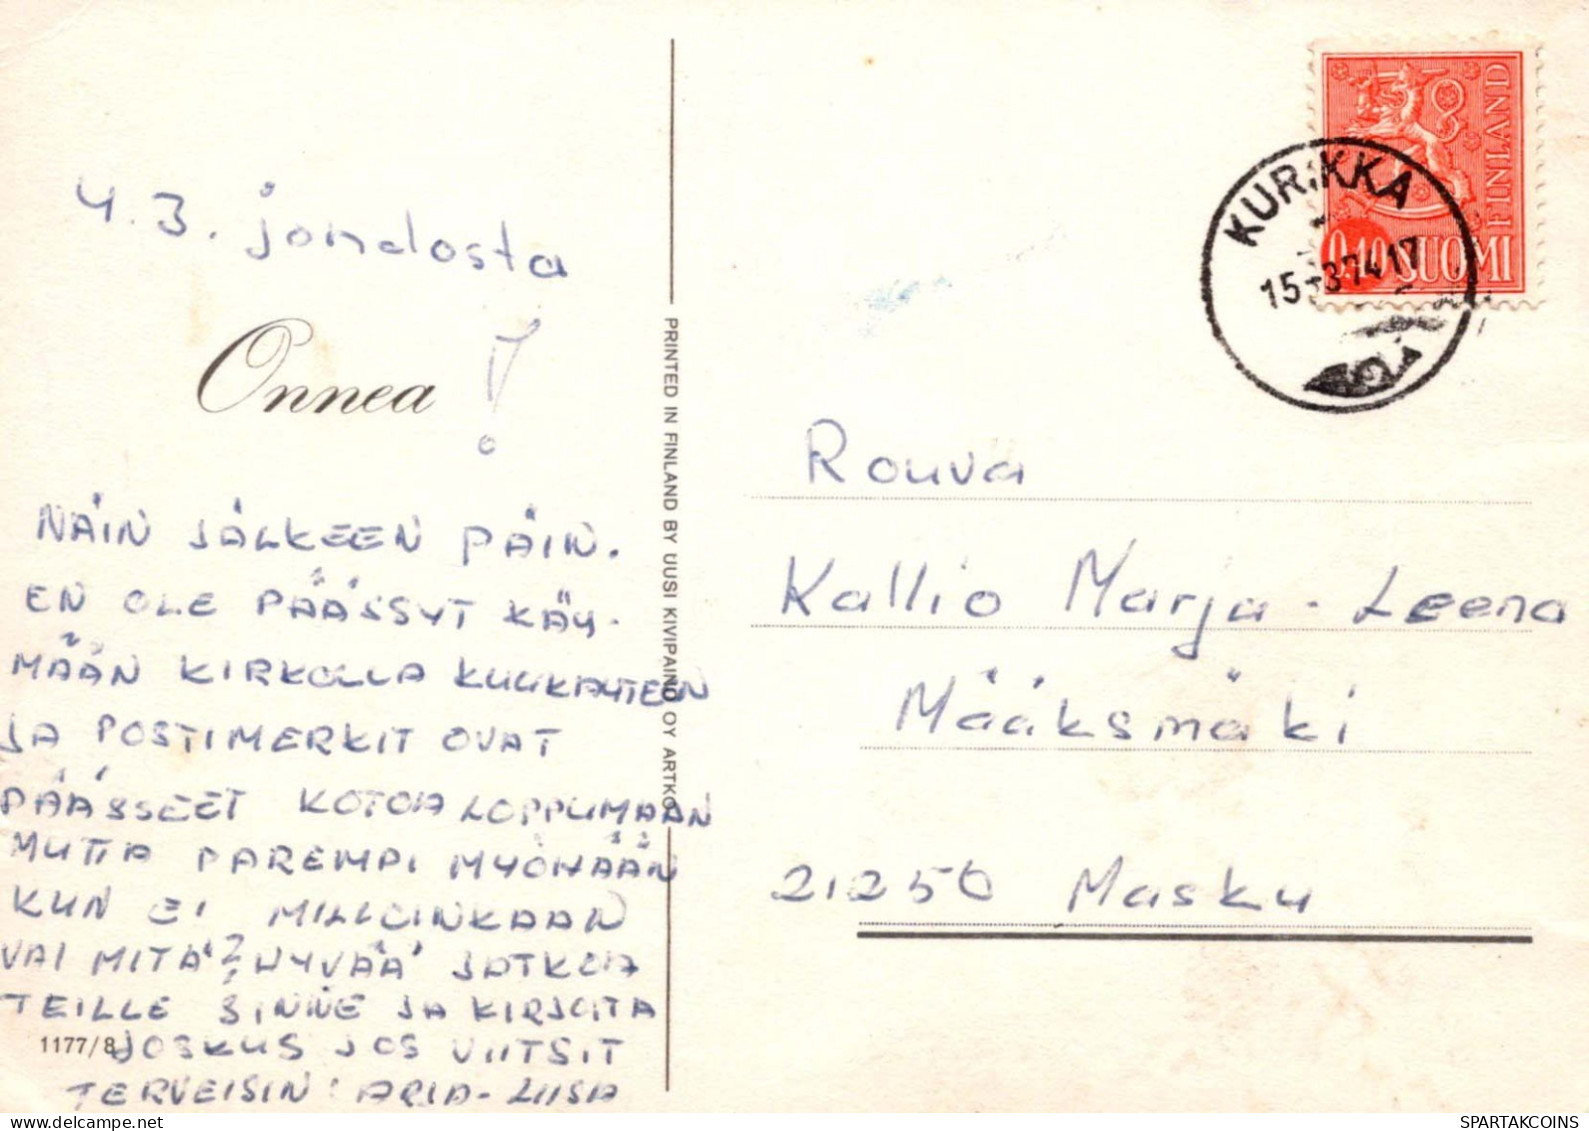 4.3. johdosta
Onnea !
NÄIN JÄLKEEN PÄIN.
EN OLE PÄÄSSYT KÄY-
MÄÄN KIRKOLLA KUUKAUTEEN
JA POSTIMERKIT OVAT
PÄÄSSEET KOTOA LOPPUMAAN
MUTTA PAREMPI MYÖHÄÄN
KUN EI MILLOINKAAN
VAI MITÄ? HYVÄÄ JATKOA
TEILLE SINNE JA KIRJOITA
JOSKUS JOS VIITSIT
TERVEISIN: ARJA-LIISA
1177/8
PRINTED IN FINLAND BY UUSI KIVIPAINO OY ARTKO
FINLAND
0,40 SUOMI
KURIKKA
15.-3.74 17
Rouva
Kallio Marja-Leena
Määksmäki
21250 Masku
SPARTAKCOINS